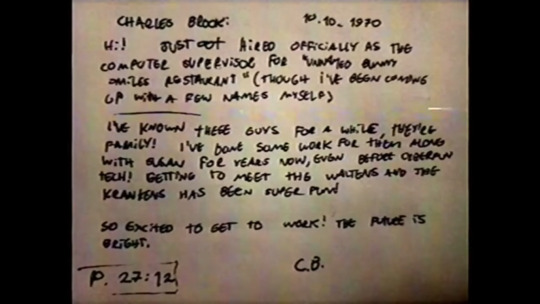 CHARLES BROOK: 10.10.1970
HI! JUST GOT HIRED OFFICIALLY AS THE
COMPUTER SUPERVISOR FOR "UNNAMED BUNNY
SMILES RESTAURANT" (THOUGH I'VE BEEN COMING
UP WITH A FEW NAMES MYSELF)
I'VE KNOWN THESE GUYS FOR A WHILE, THEY'RE
FAMILY! I'VE DONE SOME WORK FOR THEM ALONG
WITH SUSAN FOR YEARS NOW, EVEN BEFORE CYBERFUN
TECH! GETTING TO MEET THE WALTENS AND THE
KRANKENS HAS BEEN SUPER FUN!
SO EXCITED TO GET TO WORK! THE FUTURE IS
BRIGHT.
C.B.
P. 27:12